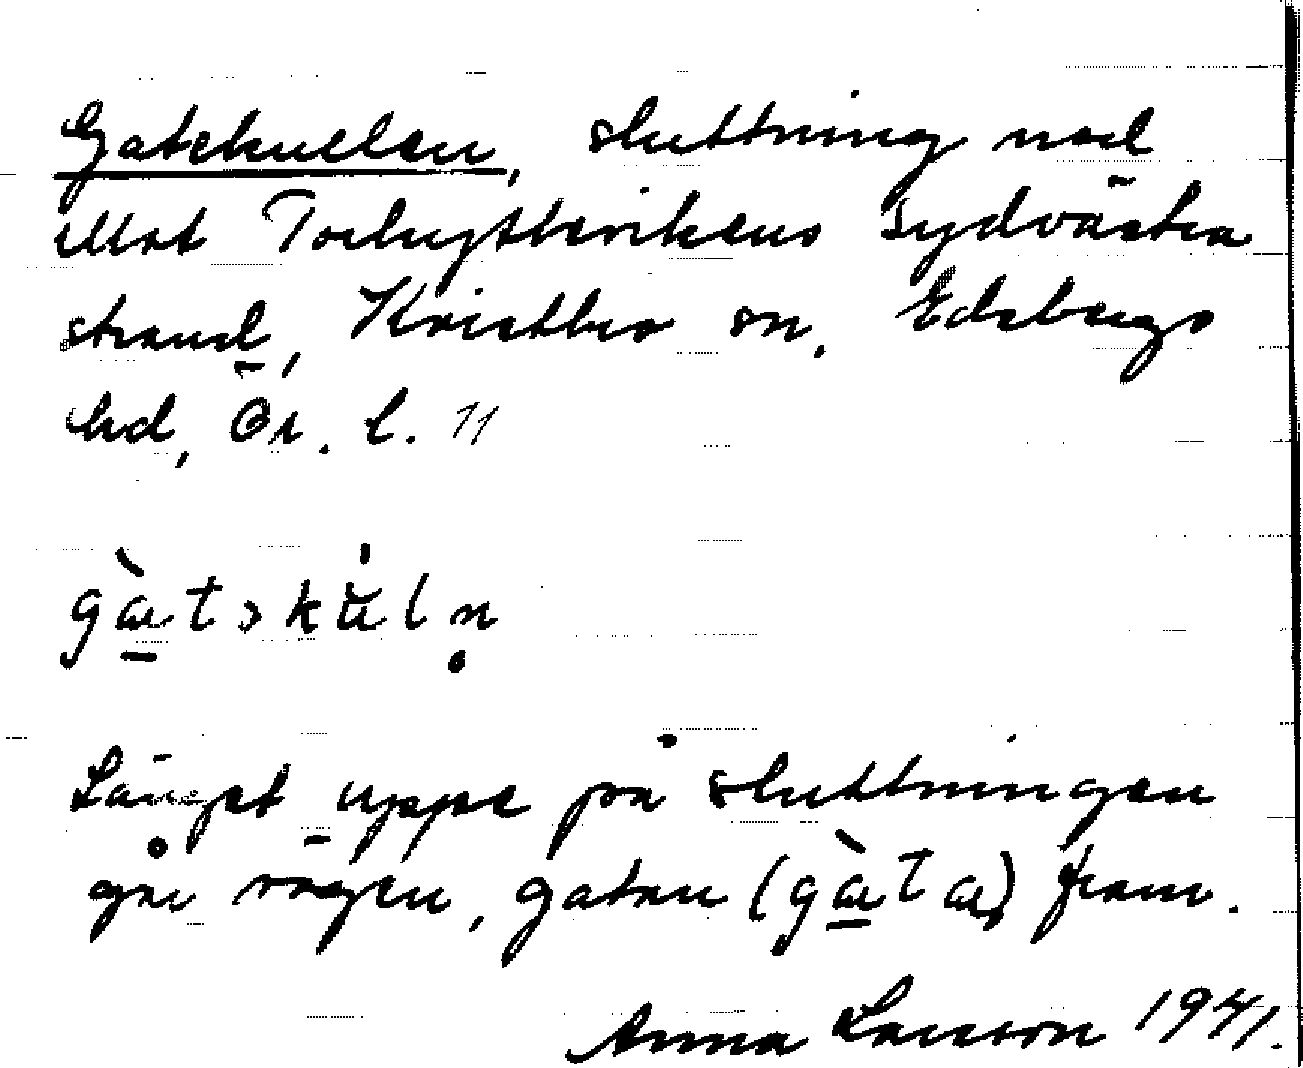 Gatekullen, sluttning ned
mot Torhyttevikens sydvästra
strand, Kvistbro sn, Edsbergs
hd, Ör. l. 11
gàtəkul̥n̥
Längst uppe på sluttningen
går vägen, gatan (gàta) fram.
Anna Larsson 1941.